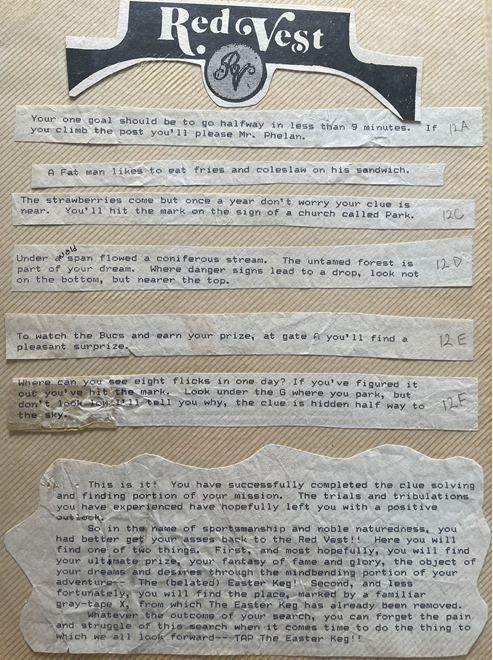 Red Vest
RV
Your one goal should be to go halfway in less than 9 minutes. If
you climb the post you'll please Mr. Phelan.
12A
A Fat man likes to eat fries and coleslaw on his sandwich.
The strawberries come but once a year don't worry your clue is
near. You'll hit the mark on the sign of a church called Park.
12C
Under span flowed a coniferous stream. The untamed forest is
part of your dream. Where danger signs lead to a drop, look not
on the bottom, but nearer the top.
12D
To watch the Bucs and earn your prize, at gate A you'll find a
pleasant surprize.
12E
Where can you see eight flicks in one day? If you've figured it
out you've hit the mark. Look under the G where you park, but
don't look low I'll tell you why, the clue is hidden half way to
the sky.
12F
This is it! You have successfully completed the clue solving
and finding portion of your mission. The trials and tribulations
you have experienced have hopefully left you with a positive
outlook.
So in the name of sportsmanship and noble naturedness, you
had better get your asses back to the Red Vest!! Here you will
find one of two things. First, and most hopefully, you will find
your ultimate prize, your fantasy of fame and glory, the object of
your dreams and desires through the mindbending portion of your
adventure-- The (belated) Easter Keg! Second, and less
fortunately, you will find the place, marked by a familiar
gray-tape X, from which The Easter Keg has already been removed.
Whatever the outcome of your search, you can forget the pain
and struggle of this search when it comes time to do the thing to
which we all look forward-- TAP The Easter Keg!!